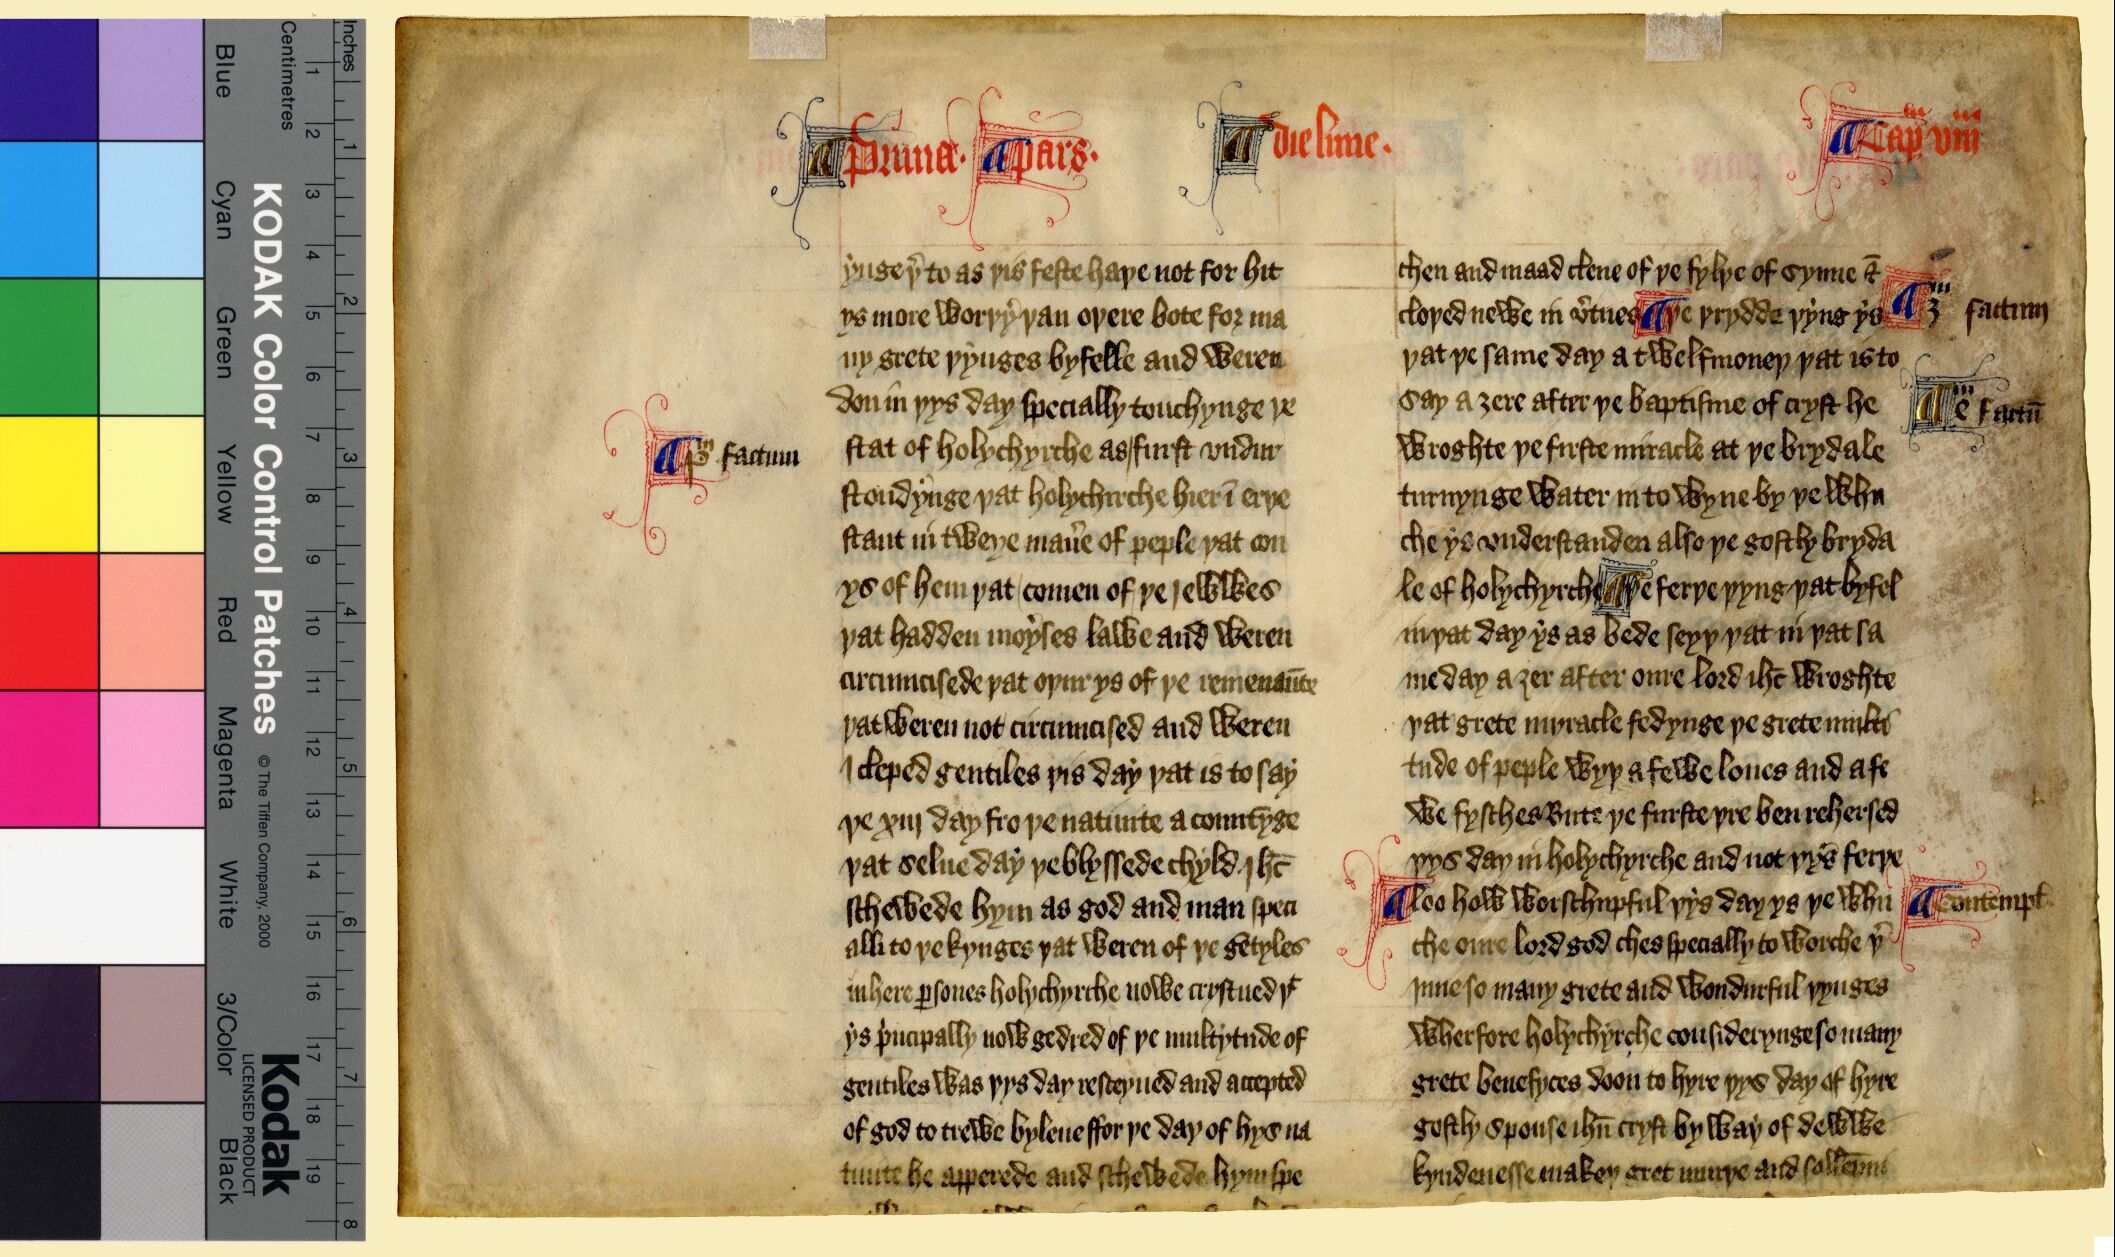 Inches 1 2 3 4 5 6 7 8
Centimetres 1 2 3 4 5 6 7 8 9 10 11 12 13 14 15 16 17 18 19
KODAK Color Control Patches © The Tiffen Company, 2000
Kodak
LICENSED PRODUCT
Blue Cyan Green Yellow Red Magenta White 3/Color Black
Prima. pars. die lune. Capm viii
ynge þer to as þis feste haþe not for hit
ys more worþy þan oþere bote for ma
ny grete þynges byfelle and weren
don in þys day specially touchynge þe
stat of holychyrche as furst vndur
stondynge þat holychirche hier ī erþe
stant in tweye man̄e of peple þat con
ys of hem þat comen of þe jewwkes
þat hadden moyses lawe and weren
circumcisede þat oþur ys of þe remenaūte
þat weren not circumcised and weren
I cleped gentiles þis day þat is to say
þe xiij day fro þe natiuite a countȳge
þat selue day þe blyssede chyld Ihc̄
schewede hym as god and man speci
alli to þe kynges þat weren of þe gētyles
in here ꝑsones holychyrche nowe crystned þt
ys pͥncipally now gedred of þe multytude of
gentiles was þys day resceyued and accepted
of god to trewe byleue ffor þe day of hys na
tiuite he apperede and schewede hym spe
pm factum
chen and maad clene of þe fylþe of synne &
cloþed newe in v̄tues Þe þrydde þyng ys
þat þe same day a twelfmoneþ þat is to
say a ȝere after þe baptisme of cryst he
wroghte þe furste miracle at þe brydale
turnynge water in to wyne by þe whi
che ys vnderstanden also þe gostly bryda
le of holychyrche Þe ferþe þyng þat byfel
in þat day ys as bede seyþ þat in þat sa
me day a ȝer after oure lord ihc̄ wroghte
þat grete myracle fedynge þe grete multi
tude of peple wyþ a fewe loues and a fe
we fysches Bute þe furste þre ben rehersed
þys day in holychyrche and not þys ferþe
loo how worschipful þys day ys þe whi
che oure lord god ches specially to worche þer
inne so many grete and wondurful þynges
wherfore holychyrche considerynge so many
grete benefyces doon to hyre þys day of hyre
gostly spouse ihū cryst by way of dewwe
kyndenesse makeþ gret murþe and sollēpni
3m factum
4m factū
contempl